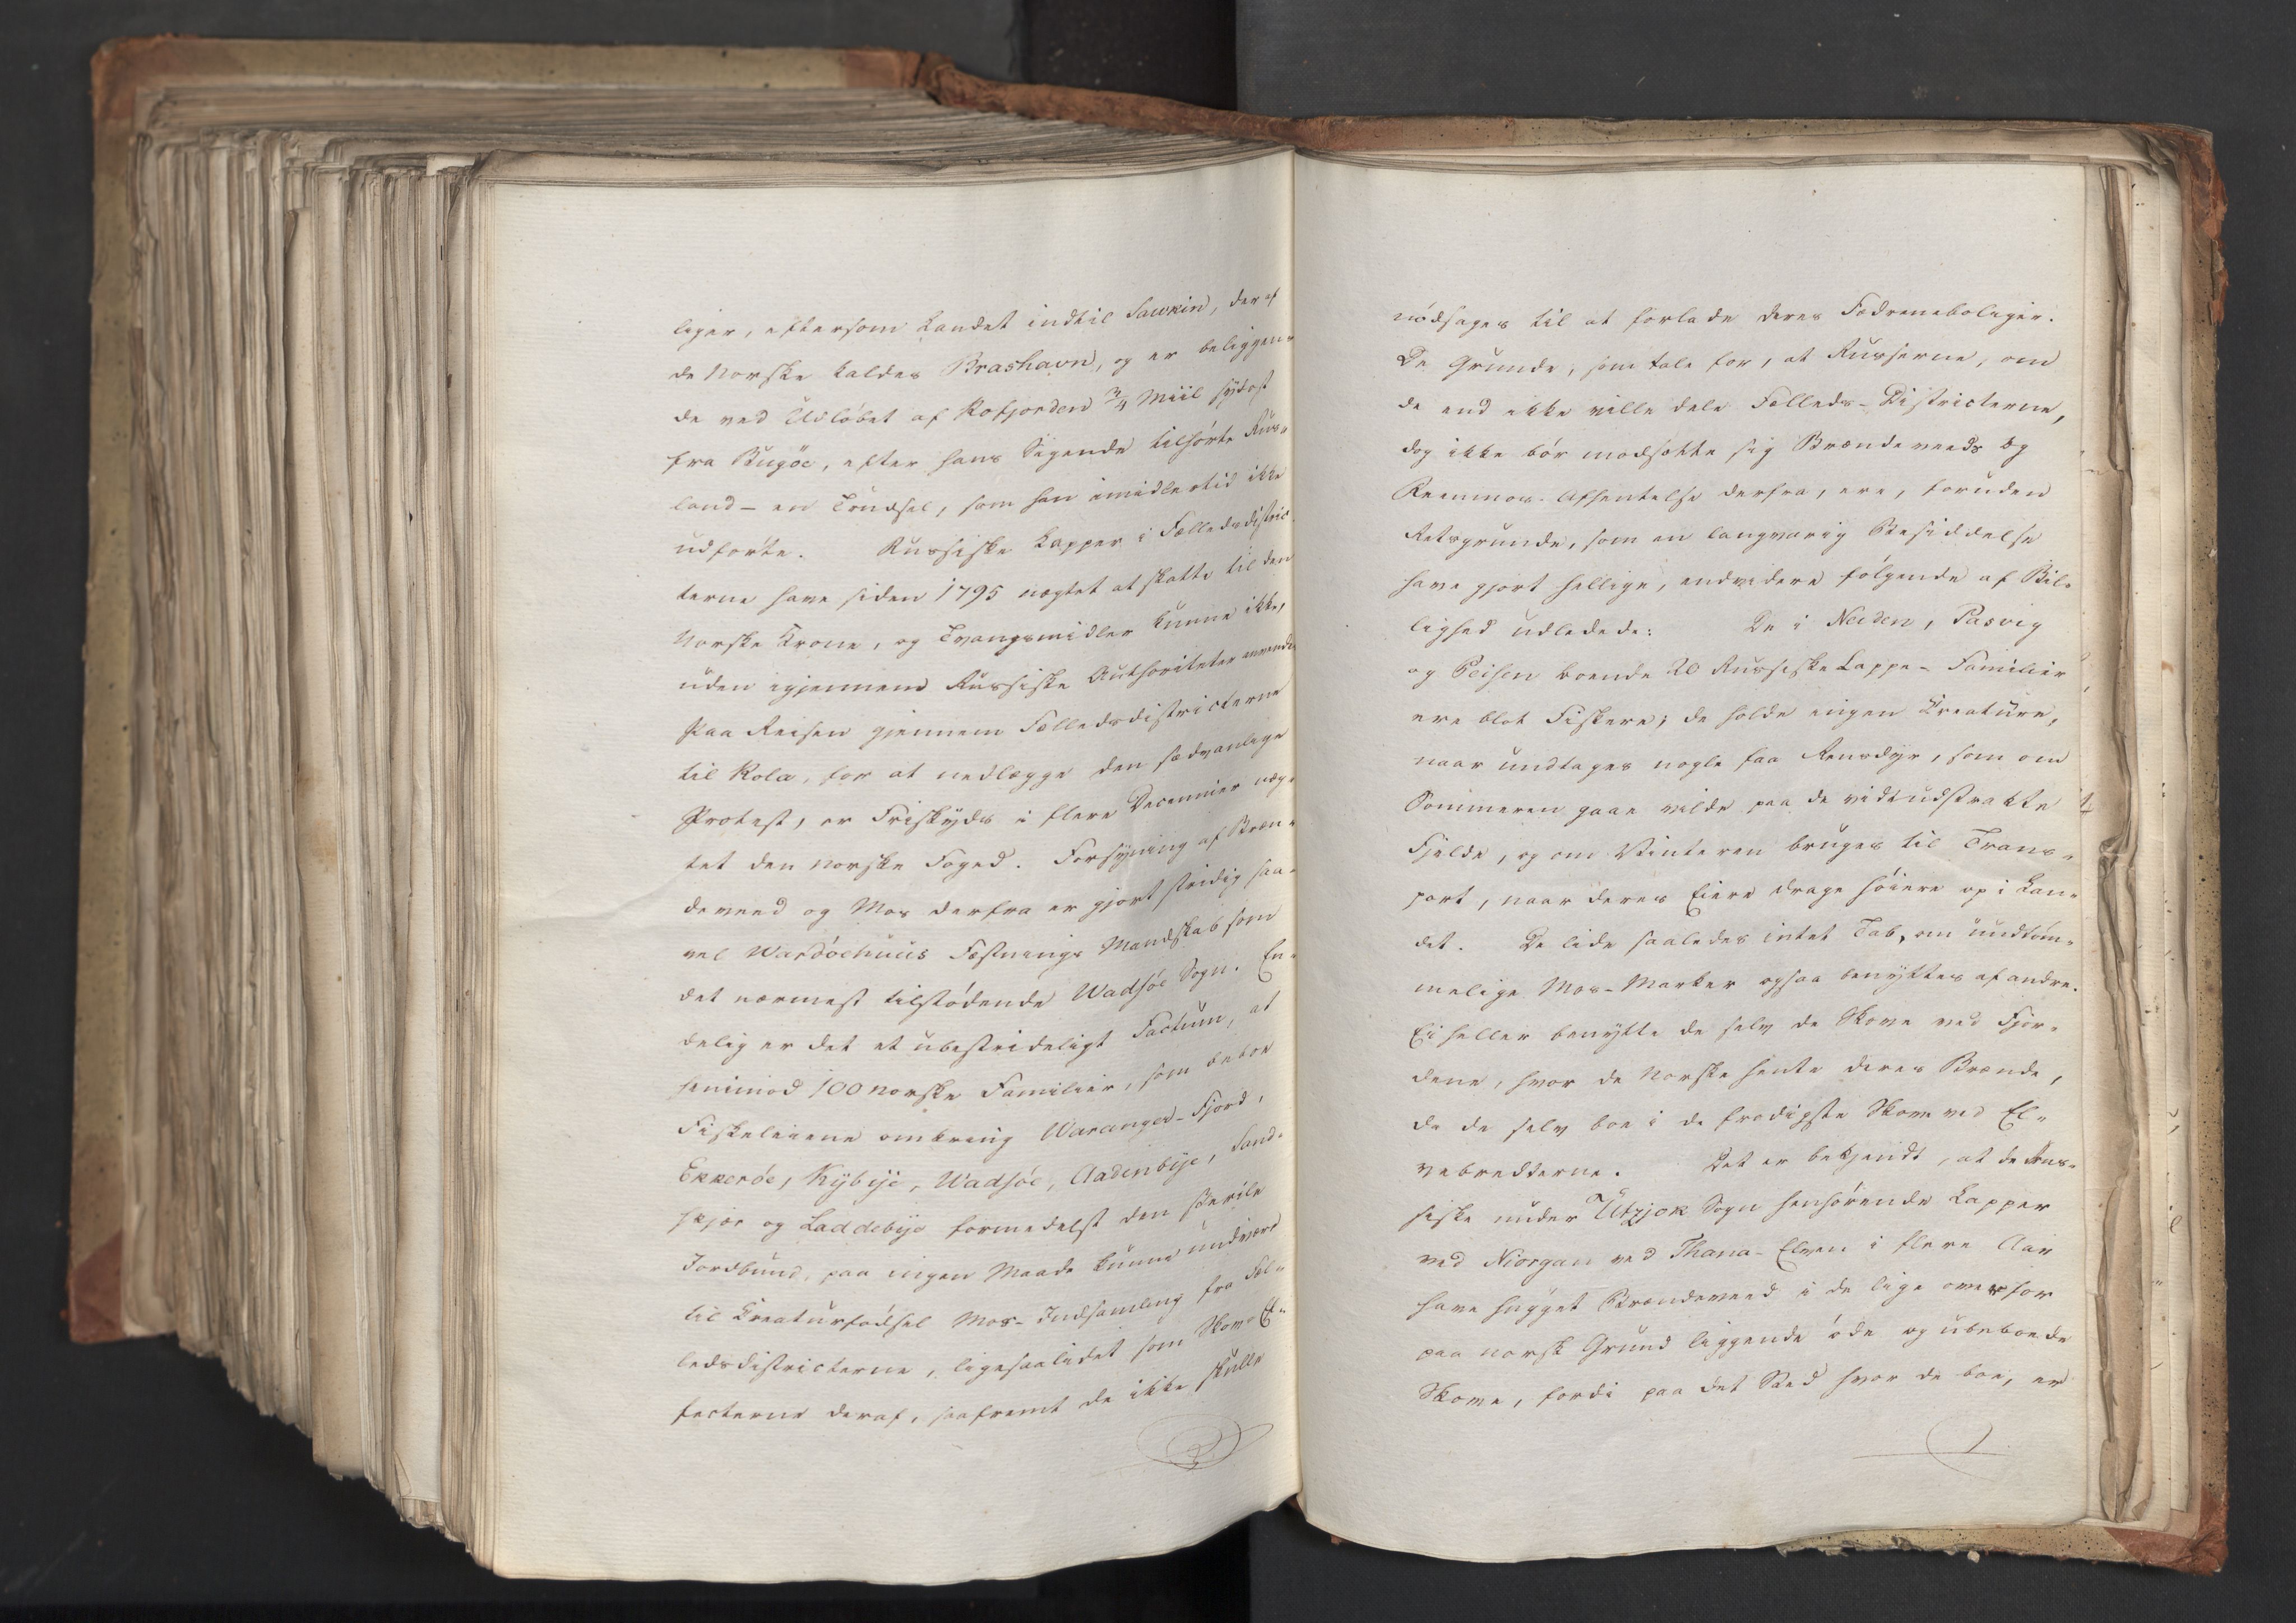 liger, eftersom Landet indtil Sawkin, der af
de Norske kaldes Brashavn, og er beliggen-
de ved Udløbet af Kofjorden 3/4 Miil sydost
fra Bugöe, efter hans Sigende tilhørte Rus-
land – en Trudsel, som han imidlertid ikke
udførte. Russiske Lapper i Fælledsdistric-
terne have siden 1795 nægtet at skatte til den
Norske Krone, og Tvangsmidler kunne ikke,
uden igjennem Russiske Authoriteter anvendes
Paa Reisen gjennem Fælledsdistricterne
til Kola, for at nedlægge den sædvanlige
Protest, er Friskyds i flere Decennier næg-
tet den norske Foged. Forsyning af Bræn-
deveed og Mos derfra er gjort stridig saa-
vel Wardöehuus Fæstnings Mandskab som
det nærmest tilstødende Wadsöe Sogn. En-
delig er det et ubestrideligt Factum, at
henimod 100 norske Familier, som beboe
Fiskeleiene omkring Waranger-Fjord,
Ekkeröe, Kÿbÿe, Wadsöe, Aadenbÿe, Sand-
skjær og Laddebÿe formedelst den sterile
Jordbund, paa ingen Maade kunne undvære
til Kreaturfødsel Mos-Indsamling fra Fæl-
ledsdistricterne, ligesaalidet som Skov-Ef-
fecterne deraf, saafremt de ikke skulle
nødsages til at forlade deres Fædreneboliger.
De Grunde, som tale for, at Russerne, om
de end ikke ville dele Fælleds-Districterne,
dog ikke bør modsætte sig Brændeveeds og
Reenmos-Afhentelse derfra, ere, foruden
Retsgrunde, som en langvarig Besiddelse
have gjort hellige, endvidere følgende af Bil-
lighed udledede: De i Neiden, Pasvig
og Peisen boende 20 Russiske Lappe-Familier
ere blot Fiskere; de holde ingen Kreature,
naar undtages nogle faa Rensdyr, som om
Sommeren gaae vilde paa de vidtudstrakte
Fjelde, og om Vinteren bruges til Trans-
port, naar deres Eiere drage høiere op i Lan-
det. De lide saaledes intet Tab, om uudtøm-
melige Mos-Marker ogsaa benyttes af andre.
Ei heller benytte de selv de Skove ved Fjor-
dene, hvor de Norske hente deres Brænde,
da de selv boe i de frodigste Skove ved El-
vebredderne. Det er bekjendt, at de Rus-
siske under Utzjok Sogn henhørende Lapper
ved Niorgan ved Thana-Elven i flere Aar
have hugget Brændeveed i de lige overfor
paa norsk Grund liggende øde og ubeboede
Skove, fordi paa det Sted hvor de boe, er